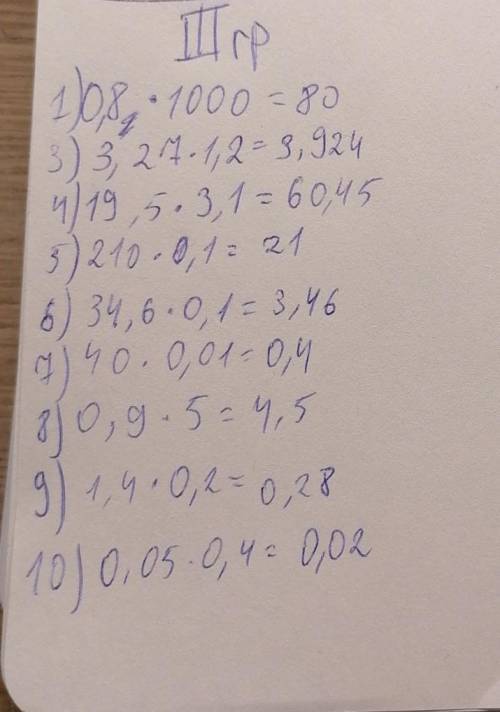 III гр
1) 0,8 · 1000 = 80
3) 3,27 · 1,2 = 3,924
4) 19,5 · 3,1 = 60,45
5) 210 · 0,1 = 21
6) 34,6 · 0,1 = 3,46
7) 40 · 0,01 = 0,4
8) 0,9 · 5 = 4,5
9) 1,4 · 0,2 = 0,28
10) 0,05 · 0,4 = 0,02